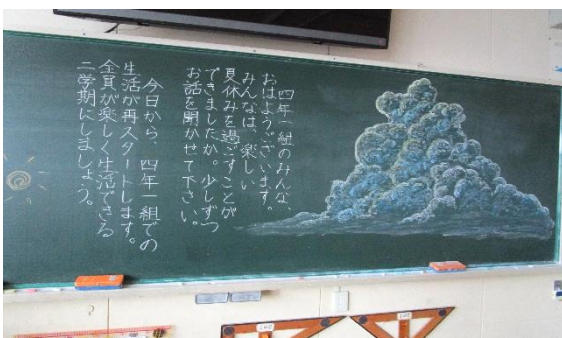 四年一組のみんな、
おはようございます。
みんなは、楽しい
夏休みを過ごすことが
できましたか。少しずつ
お話を聞かせて下さい。
今日から、四年一組での
生活が再スタートします。
全員が楽しく生活できる
二学期にしましょう。